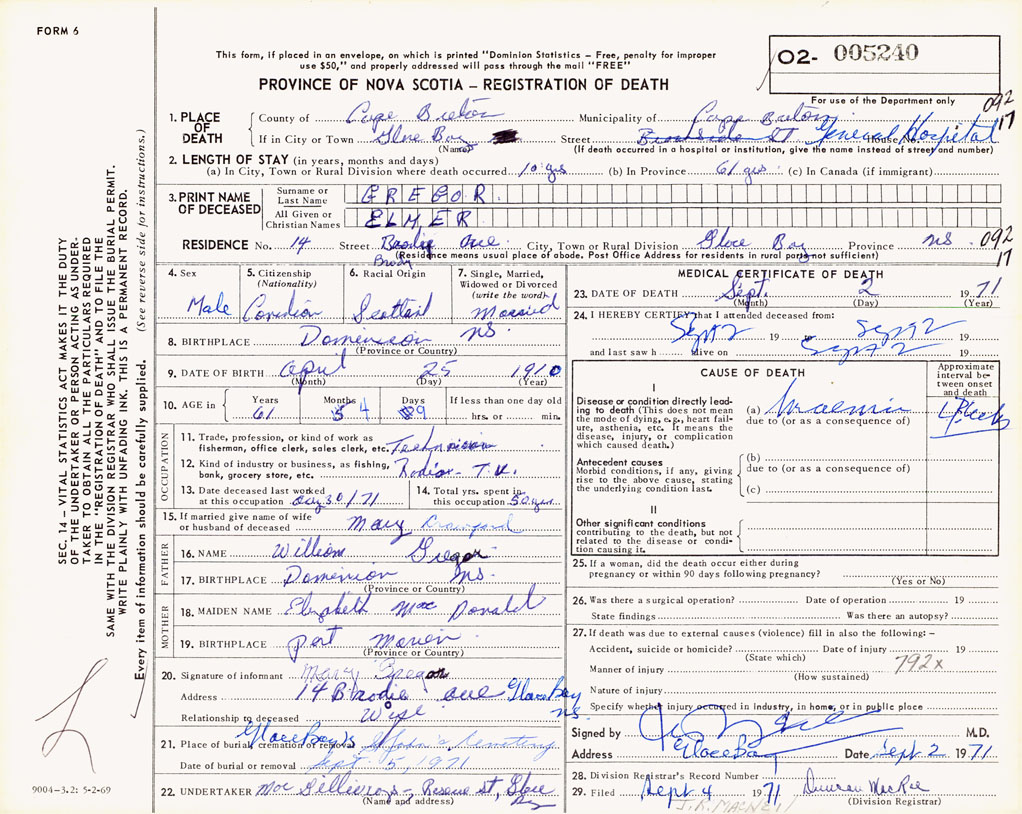 FORM 6
This form, if placed in an envelope, on which is printed "Dominion Statistics – Free, penalty for improper
use $50," and properly addressed will pass through the mail "FREE"
O2- 005240
PROVINCE OF NOVA SCOTIA – REGISTRATION OF DEATH
For use of the Department only
092
17
1. PLACE OF DEATH
County of Cape Breton Municipality of Cape Breton
If in City or Town Glace Bay Street General Hospital House No.
(Name) (If death occurred in a hospital or institution, give the name instead of street and number)
2. LENGTH OF STAY (in years, months and days)
(a) In City, Town or Rural Division where death occurred 10 yrs (b) In Province 61 yrs (c) In Canada (if immigrant)
3. PRINT NAME OF DECEASED
Surname or Last Name GREGOR
All Given or Christian Names ELMER
RESIDENCE No. 14 Street Brodie Ave City, Town or Rural Division Glace Bay Province NS 092
17
(Residence means usual place of abode. Post Office Address for residents in rural parts not sufficient)
Brody
4. Sex
Male
5. Citizenship
(Nationality)
Canadian
6. Racial Origin
Scotland
7. Single, Married,
Widowed or Divorced
(write the word)
Married
8. BIRTHPLACE Dominion NS
(Province or Country)
9. DATE OF BIRTH April 25 1910
(Month) (Day) (Year)
10. AGE in Years 61 Months 4 Days 9 If less than one day old
hrs. or min.
OCCUPATION
11. Trade, profession, or kind of work as
fisherman, office clerk, sales clerk, etc. Technician
12. Kind of industry or business, as fishing,
bank, grocery store, etc. Radio - T.V.
13. Date deceased last worked
at this occupation Aug 30/71
14. Total yrs. spent in
this occupation 50 yrs
15. If married give name of wife
or husband of deceased Mary Crawford
FATHER
16. NAME William Gregor
17. BIRTHPLACE Dominion NS
(Province or Country)
MOTHER
18. MAIDEN NAME Elizabeth MacDonald
19. BIRTHPLACE Port Morien
(Province or Country)
20. Signature of informant Mary Gregor
Address 14 Brodie Ave Glace Bay NS.
Relationship to deceased Wife
21. Place of burial, cremation or removal Glace Bay St John's Cemetery
Date of burial or removal Sept. 5, 1971
22. UNDERTAKER MacGillivrays - Reserve St, Glace Bay
(Name and address)
MEDICAL CERTIFICATE OF DEATH
23. DATE OF DEATH Sept. 2 1971
(Month) (Day) (Year)
24. I HEREBY CERTIFY that I attended deceased from:
Sept 2 19 Sept 2
and last saw h alive on Sept 2 19
CAUSE OF DEATH
Approximate
interval be-
tween onset
and death
I
Disease or condition directly lead-
ing to death (This does not mean
the mode of dying, e.g., heart fail-
ure, asthenia, etc. It means the
disease, injury, or complication
which caused death.)
(a) Uraemia
due to (or as a consequence of)
Antecedent causes
Morbid conditions, if any, giving
rise to the above cause, stating
the underlying condition last.
(b)
due to (or as a consequence of)
(c)
II
Other significant conditions
contributing to the death, but not
related to the disease or condi-
tion causing it.
25. If a woman, did the death occur either during
pregnancy or within 90 days following pregnancy?
(Yes or No)
26. Was there a surgical operation? Date of operation 19
State findings Was there an autopsy?
27. If death was due to external causes (violence) fill in also the following: –
Accident, suicide or homicide? Date of injury 19
(State which)
792x
Manner of injury
(How sustained)
Nature of injury
Specify whether injury occurred in industry, in home, or in public place
Signed by M.D.
Address Glace Bay Date Sept 2 1971
28. Division Registrar's Record Number
29. Filed Sept 4 1971 Duncan MacRae
(Division Registrar)
SEC. 14 – VITAL STATISTICS ACT MAKES IT THE DUTY
OF THE UNDERTAKER OR PERSON ACTING AS UNDER-
TAKER TO OBTAIN ALL THE PARTICULARS REQUIRED
IN THE "REGISTRATION OF DEATH" AND TO FILE THE
SAME WITH THE DIVISION REGISTRAR WHO SHALL ISSUE THE BURIAL PERMIT.
WRITE PLAINLY WITH UNFADING INK. THIS IS A PERMANENT RECORD.
Every item of information should be carefully supplied. (See reverse side for instructions.)
9004-3.2: 5-2-69